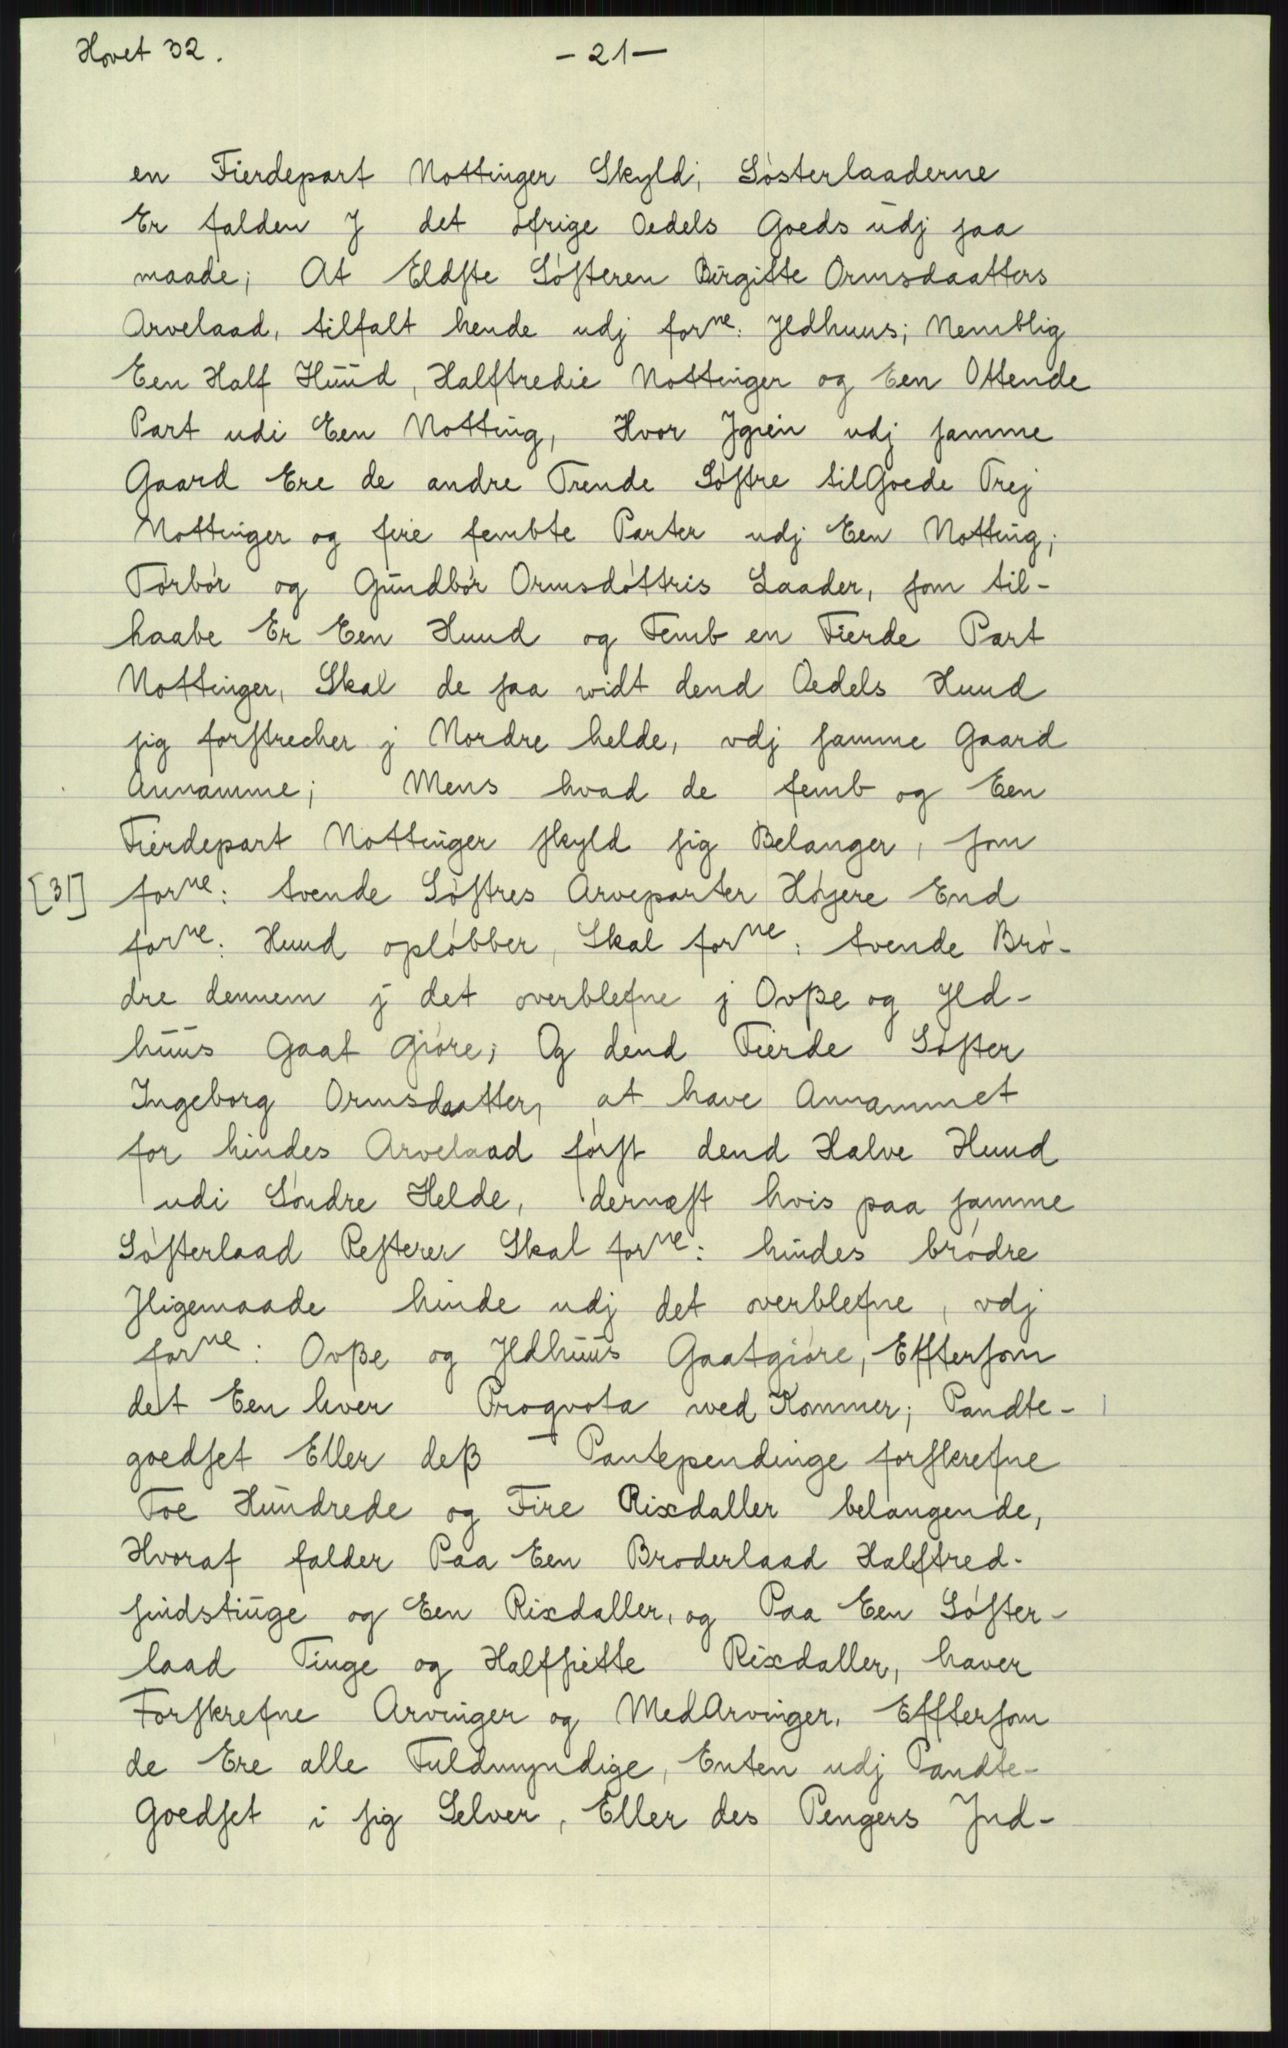 Hovet 32.
- 21 -
en Fierdepart Nottinger Skyld, Søsterlaaderne
Er falden J det øfrige Oedels Goeds udj saa
maade; At Eldste Søsteren Birgitte Ormsdaatters
Arvelaad, tilfalt hende udj forne: Jldhuus; Nemblig
Een Half Huud, Halftredie Nottinger og Een Ottende
Part udi Een Notting, Hvor Jgien udj samme
Gaard Ere de andre Trende Søstre tilGoede Trej
Nottinger og fire fembte Parter udj Een Notting;
Torbør og Gundbør Ormsdøttris Laader, som til-
haabe Er Een Huud og Femb en Fierde Part
Nottinger, Skal de saa widt dend Oedels Huud
sig forstrecher j Nordre helde, vdj samme Gaard
Annamme; Mens hvad de femb og Een
Fierdepart Nottinger skyld sig Belanger, som
[31] forne: tvende Søstres Arveparter Høyere End
forne: Huud opløbber, Skal forne: tvende Brø-
dre dennem j det overblefne j Ovße og Jld-
huus Gaat Giøre; Og dend Fierde Søster
Ingeborg Ormsdaatter, at have Annammet
for hindes Arvelaad først dend Halve Huud
udi Søndre Helde, dernæst hvis paa samme
Søsterlaad Resterer Skal forne: hindes brødre
Jligemaade hinde udj det overblefne, vdj
forne: Ovße og Jldhuus Gaatgiøre, Efftersom
det Een hver Proqvota wed Kommer; Pandte-
goedset Eller deß Pantependinge forskrefne
Toe Hundrede og Fire Rixdaller belangende,
Hvoraf falder Paa Een Broderlaad Halftred-
sindstiuge og Een Rixdaller, og Paa Een Søster-
laad Tiuge og Halfsiette Rixdaller, haver
Forskrefne Arvinger og MedArvinger, Effterson
de Ere alle Fuldmyndige, Enten udj Pandte-
Goedset i sig Selver, Eller des Pengers Jnd-